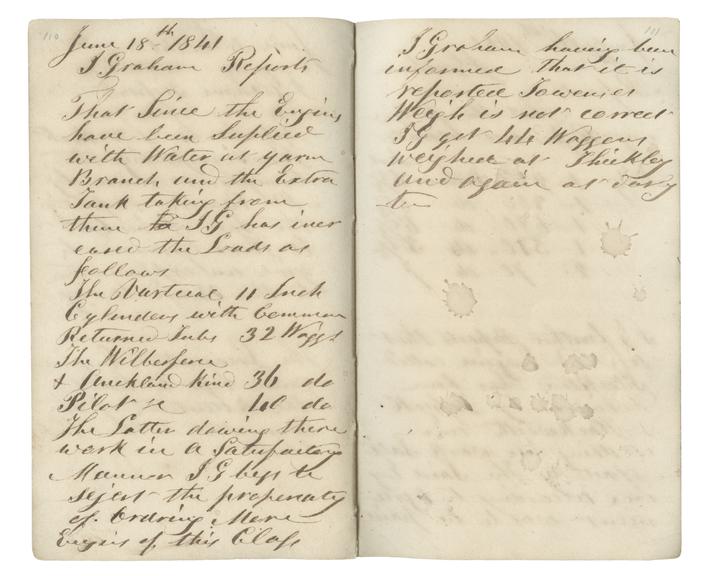 110
June 18th 1841
J Graham Reports
That Since the Engins
have been Suplied
with Water at yarm
Branch and the Extra
Tank taking from
them to JG has incr
eased the Loads as
follows
The Vurtucal 11 Inch
Cylenders with Common
Returned Tubs 32 Waggs
The Wilberforce
& Auckland Kind 36 do
Pilot 40 do
The Latter dowing there
work in a Satisfactory
Manner JG begs to
Sejest the properaty
of Ordring More
Engins of this Class
111
J Graham having been
informed that it is
reported
Weigh is not correct
JG got 44 Waggons
weighed at Thickley
and again at